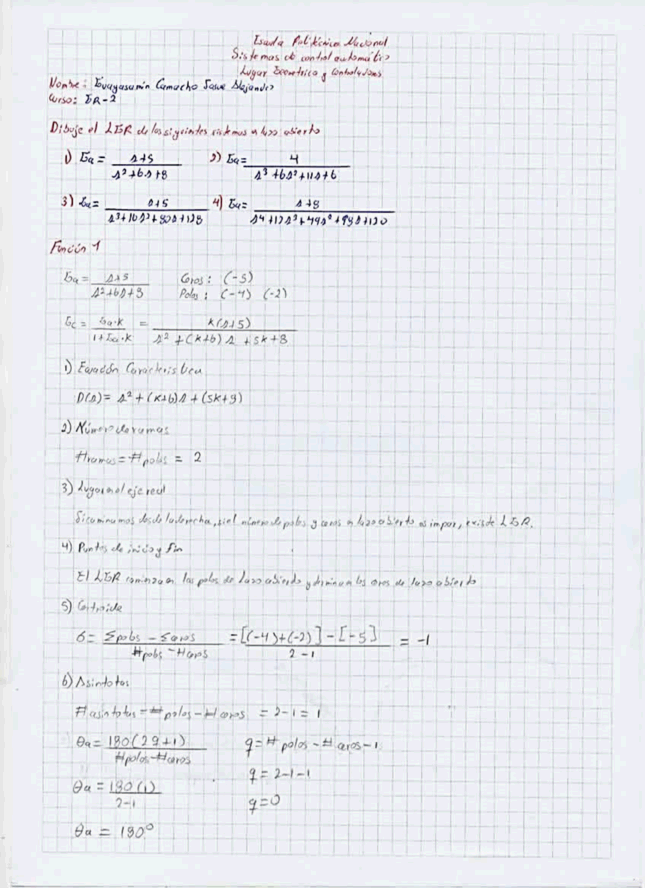 Escuela Politécnica Nacional
Sistemas de control automático
Lugar Geométrico y Controladores
Nombre: Guayasamín Camacho Josue Alejandro
Curso: GR-2
Dibuje el LGR de los siguientes sistemas en lazo abierto
1) Ga = (s+5)/(s²+6s+8) 2) Ga = 4/(s³+6s²+11s+6)
3) Ga = (s+5)/(s³+16s²+80s+128) 4) Ga = (s+8)/(s⁴+12s³+49s²+98s+120)
Función 1
Ga = (s+5)/(s²+6s+8) Ceros: (-5)
Polos: (-4) (-2)
Gc = (Ga·K)/(1+Ga·K) = K(s+5)/(s²+(K+6)s+5K+8)
1) Ecuación Característica
D(s) = s²+(K+6)s+(5K+8)
2) Número de ramas
#ramas = #polos = 2
3) Lugar en el eje real
Si caminamos desde la derecha, si el número de polos y ceros en lazo abierto es impar, existe LGR.
4) Puntos de inicio y fin
El LGR comienza en los polos de lazo abierto y termina en los ceros de lazo abierto
5) Centroide
σ = (Σpolos - Σceros)/(#polos - #ceros) = ([(-4)+(-2)] - [-5])/(2-1) = -1
6) Asíntotas
#asíntotas = #polos - #ceros = 2-1 = 1
θa = 180(2q+1)/(#polos-#ceros) q = #polos - #ceros - 1
q = 2-1-1
θa = 180(1)/(2-1)
q = 0
θa = 180°